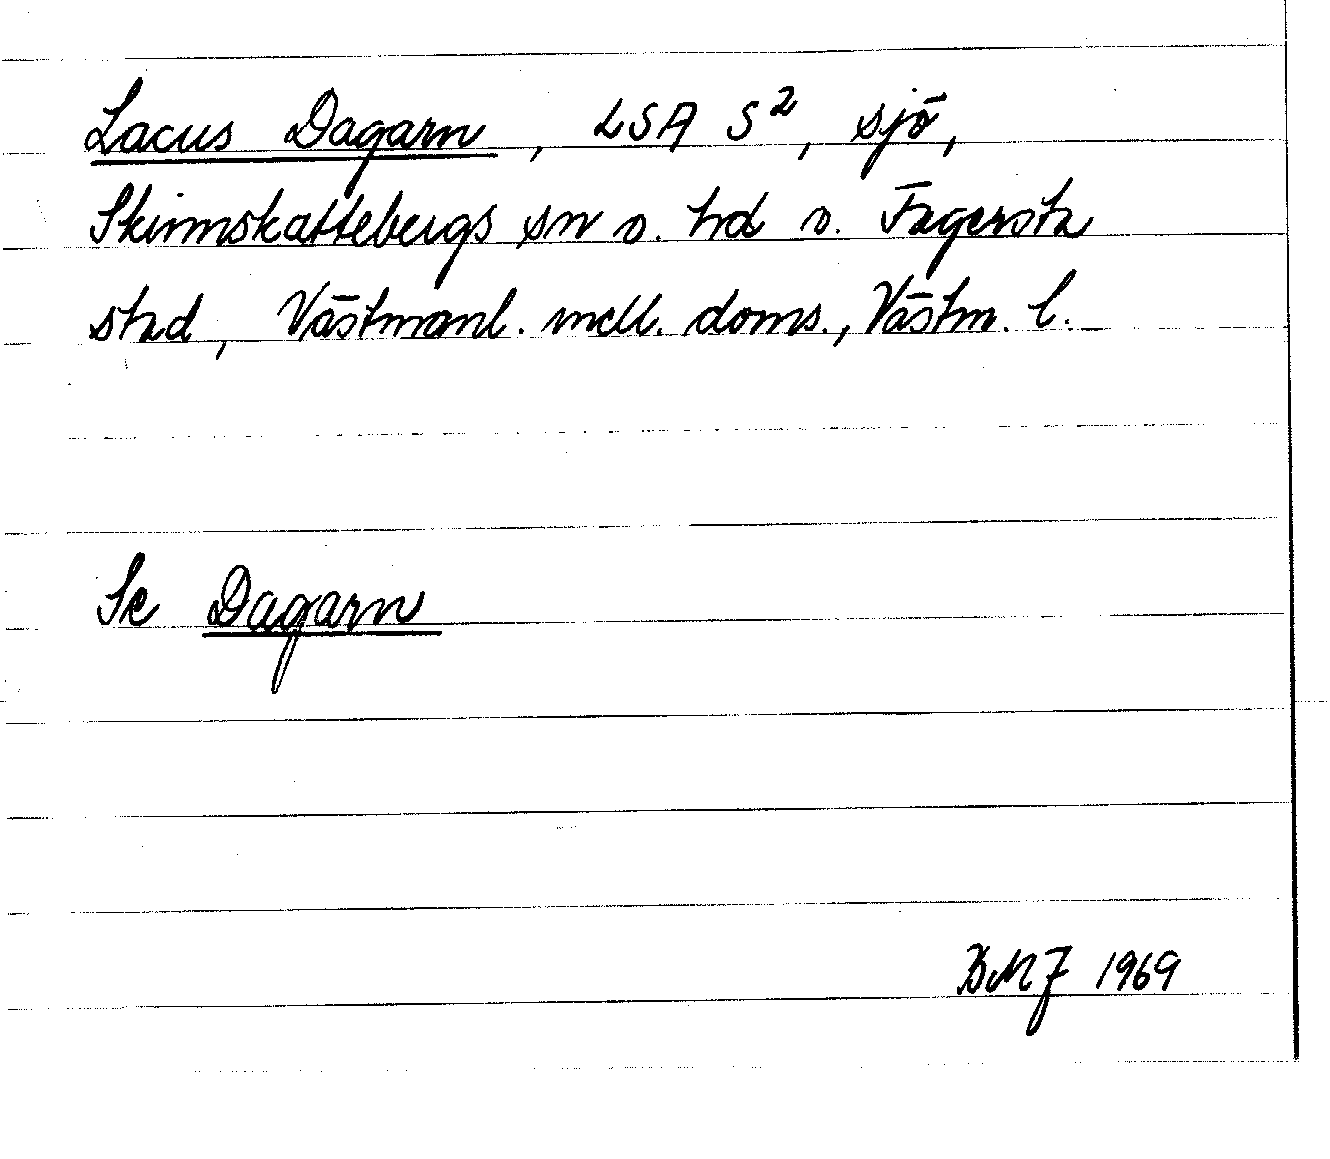 Lacus Dagarn, LSA S², sjö,
Skinnskattebergs sn o. hd o. Fagersta
stad, Västmanl. mell. doms., Västm. l.
Se Dagarn
BMJ 1969